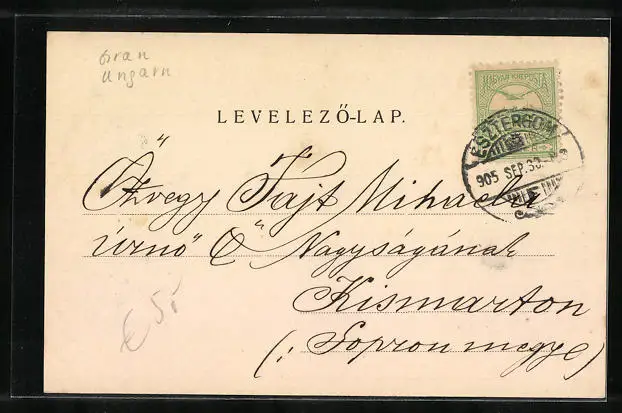 Gran
Ungarn
MAGYAR KIR. POSTA
LEVELEZŐ-LAP.
ESZTERGOM
905 SEP. 30.
Özvegy Fajt Mihalné
úrnő Ő Nagyságának
Kismarton
(: Sopron megye)
€ 5,-